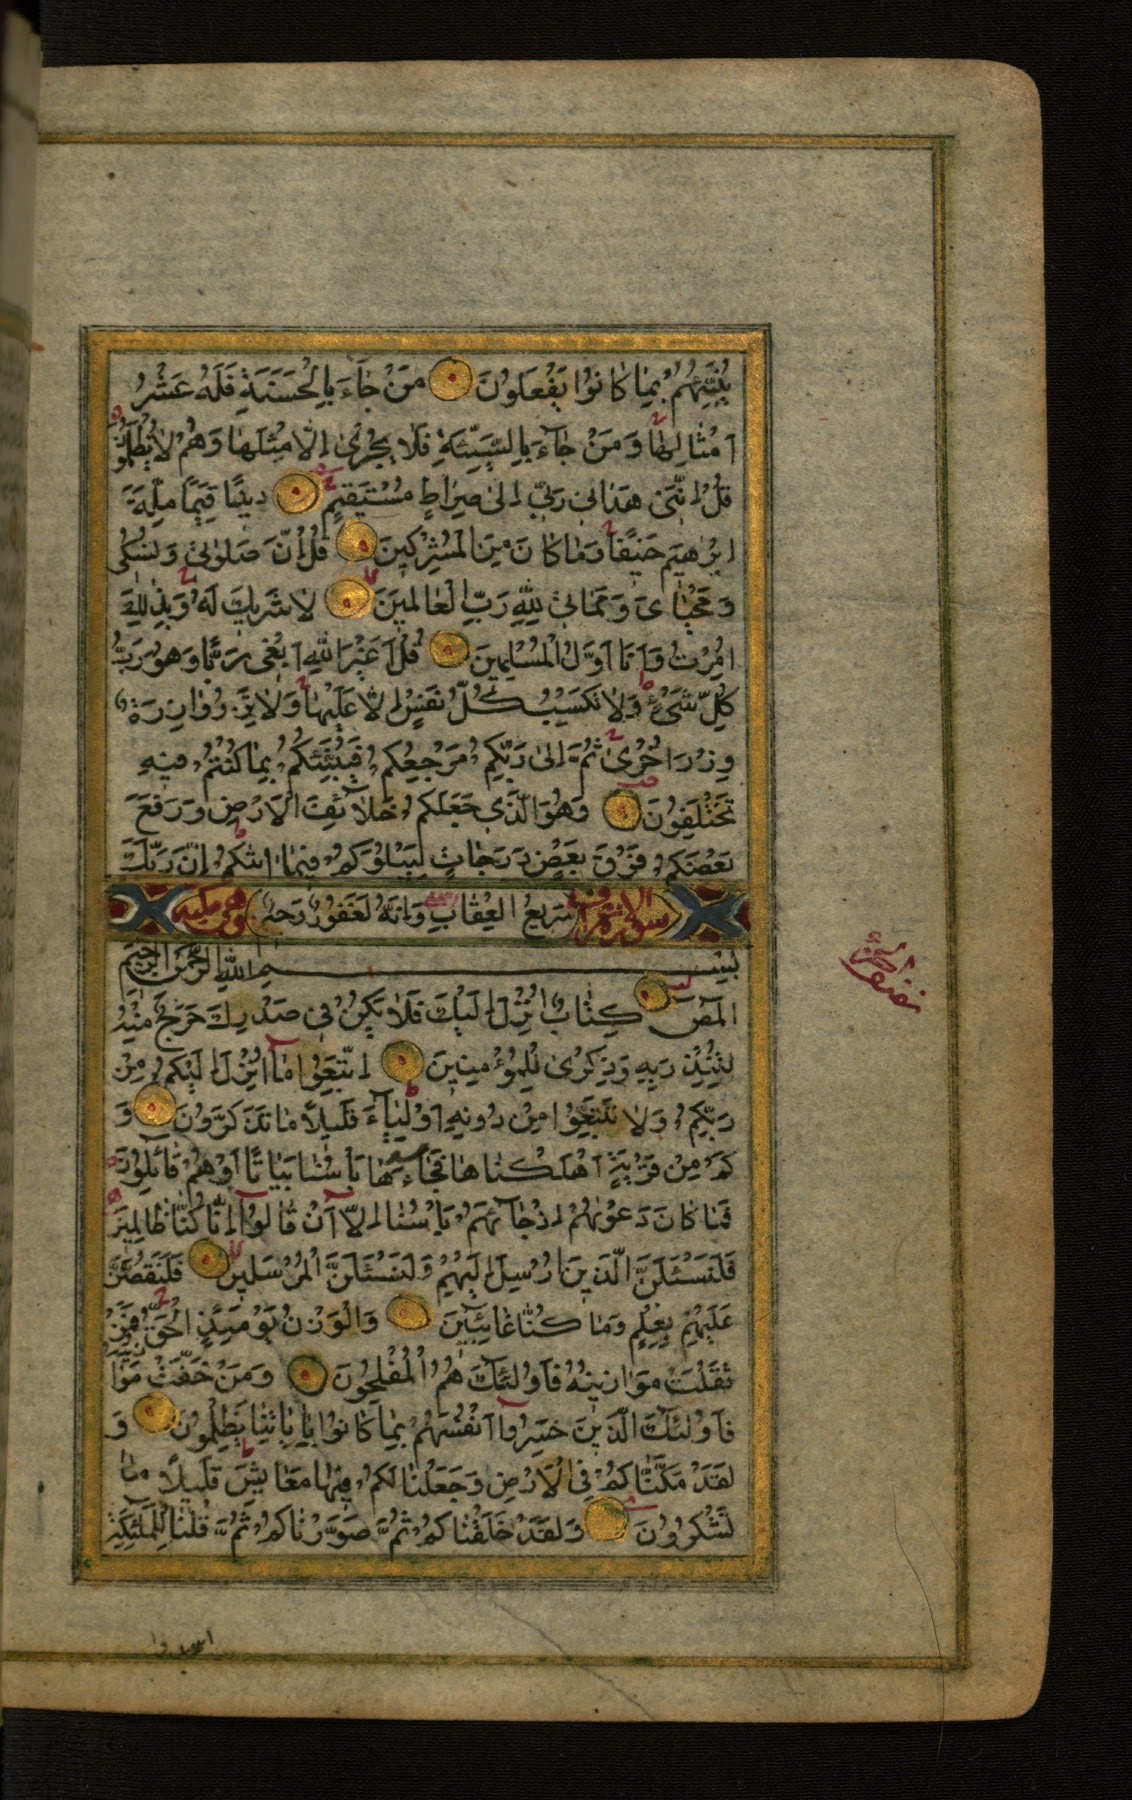 يُنَبِّئُهُمْ بِمَا كَانُوا يَفْعَلُونَ مَنْ جَآءَ بِالْحَسَنَةِ فَلَهُ عَشْرُ
اَمْثَالِهَا وَمَنْ جَآءَ بِالسَّيِّئَةِ فَلَا يُجْزٰى اِلَّا مِثْلَهَا وَهُمْ لَا يُظْلَمُونَ
قُلْ اِنَّنِى هَدَانِى رَبِّى اِلٰى صِرَاطٍ مُسْتَقِيمٍ دِينًا قِيَمًا مِلَّةَ
اِبْرٰهِيمَ حَنِيفًا وَمَا كَانَ مِنَ الْمُشْرِكِينَ قُلْ اِنَّ صَلٰوتِى وَنُسُكِى
وَمَحْيَاىَ وَمَمَاتِى لِلّٰهِ رَبِّ الْعَالَمِينَ لَا شَرِيكَ لَهُ وَبِذٰلِكَ
اُمِرْتُ وَاَنَا اَوَّلُ الْمُسْلِمِينَ قُلْ اَغَيْرَ اللّٰهِ اَبْغِى رَبًّا وَهُوَ رَبُّ
كُلِّ شَىْءٍ وَلَا تَكْسِبُ كُلُّ نَفْسٍ اِلَّا عَلَيْهَا وَلَا تَزِرُ وَازِرَةٌ
وِزْرَ اُخْرٰى ثُمَّ اِلٰى رَبِّكُمْ مَرْجِعُكُمْ فَيُنَبِّئُكُمْ بِمَا كُنْتُمْ فِيهِ
تَخْتَلِفُونَ وَهُوَ الَّذِى جَعَلَكُمْ خَلَآئِفَ الْاَرْضِ وَرَفَعَ
بَعْضَكُمْ فَوْقَ بَعْضٍ دَرَجَاتٍ لِيَبْلُوَكُمْ فِيمَا اٰتٰكُمْ اِنَّ رَبَّكَ
سورة الاعراف سَرِيعُ الْعِقَابِ وَاِنَّهُ لَغَفُورٌ رَحِيمٌ وهى مكية
بِسْمِ اللّٰهِ الرَّحْمٰنِ الرَّحِيمِ
الٓمٓصٓ كِتَابٌ اُنْزِلَ اِلَيْكَ فَلَا يَكُنْ فِى صَدْرِكَ حَرَجٌ مِنْهُ
لِتُنْذِرَ بِهِ وَذِكْرٰى لِلْمُؤْمِنِينَ اِتَّبِعُوا مَآ اُنْزِلَ اِلَيْكُمْ مِنْ
رَبِّكُمْ وَلَا تَتَّبِعُوا مِنْ دُونِهِ اَوْلِيَآءَ قَلِيلًا مَا تَذَكَّرُونَ وَ
كَمْ مِنْ قَرْيَةٍ اَهْلَكْنَاهَا فَجَآءَهَا بَأْسُنَا بَيَاتًا اَوْ هُمْ قَآئِلُونَ
فَمَا كَانَ دَعْوٰيهُمْ اِذْ جَآءَهُمْ بَأْسُنَا اِلَّآ اَنْ قَالُوا اِنَّا كُنَّا ظَالِمِينَ
فَلَنَسْئَلَنَّ الَّذِينَ اُرْسِلَ اِلَيْهِمْ وَلَنَسْئَلَنَّ الْمُرْسَلِينَ فَلَنَقُصَّنَّ
عَلَيْهِمْ بِعِلْمٍ وَمَا كُنَّا غَآئِبِينَ وَالْوَزْنُ يَوْمَئِذٍ الْحَقُّ فَمَنْ
ثَقُلَتْ مَوَازِينُهُ فَاُولٰئِكَ هُمُ الْمُفْلِحُونَ وَمَنْ خَفَّتْ مَوَازِينُهُ
فَاُولٰئِكَ الَّذِينَ خَسِرُوا اَنْفُسَهُمْ بِمَا كَانُوا بِاٰيَاتِنَا يَظْلِمُونَ وَ
لَقَدْ مَكَّنَّاكُمْ فِى الْاَرْضِ وَجَعَلْنَا لَكُمْ فِيهَا مَعَايِشَ قَلِيلًا مَا
تَشْكُرُونَ وَلَقَدْ خَلَقْنَاكُمْ ثُمَّ صَوَّرْنَاكُمْ ثُمَّ قُلْنَا لِلْمَلٰئِكَةِ
اسجدوا